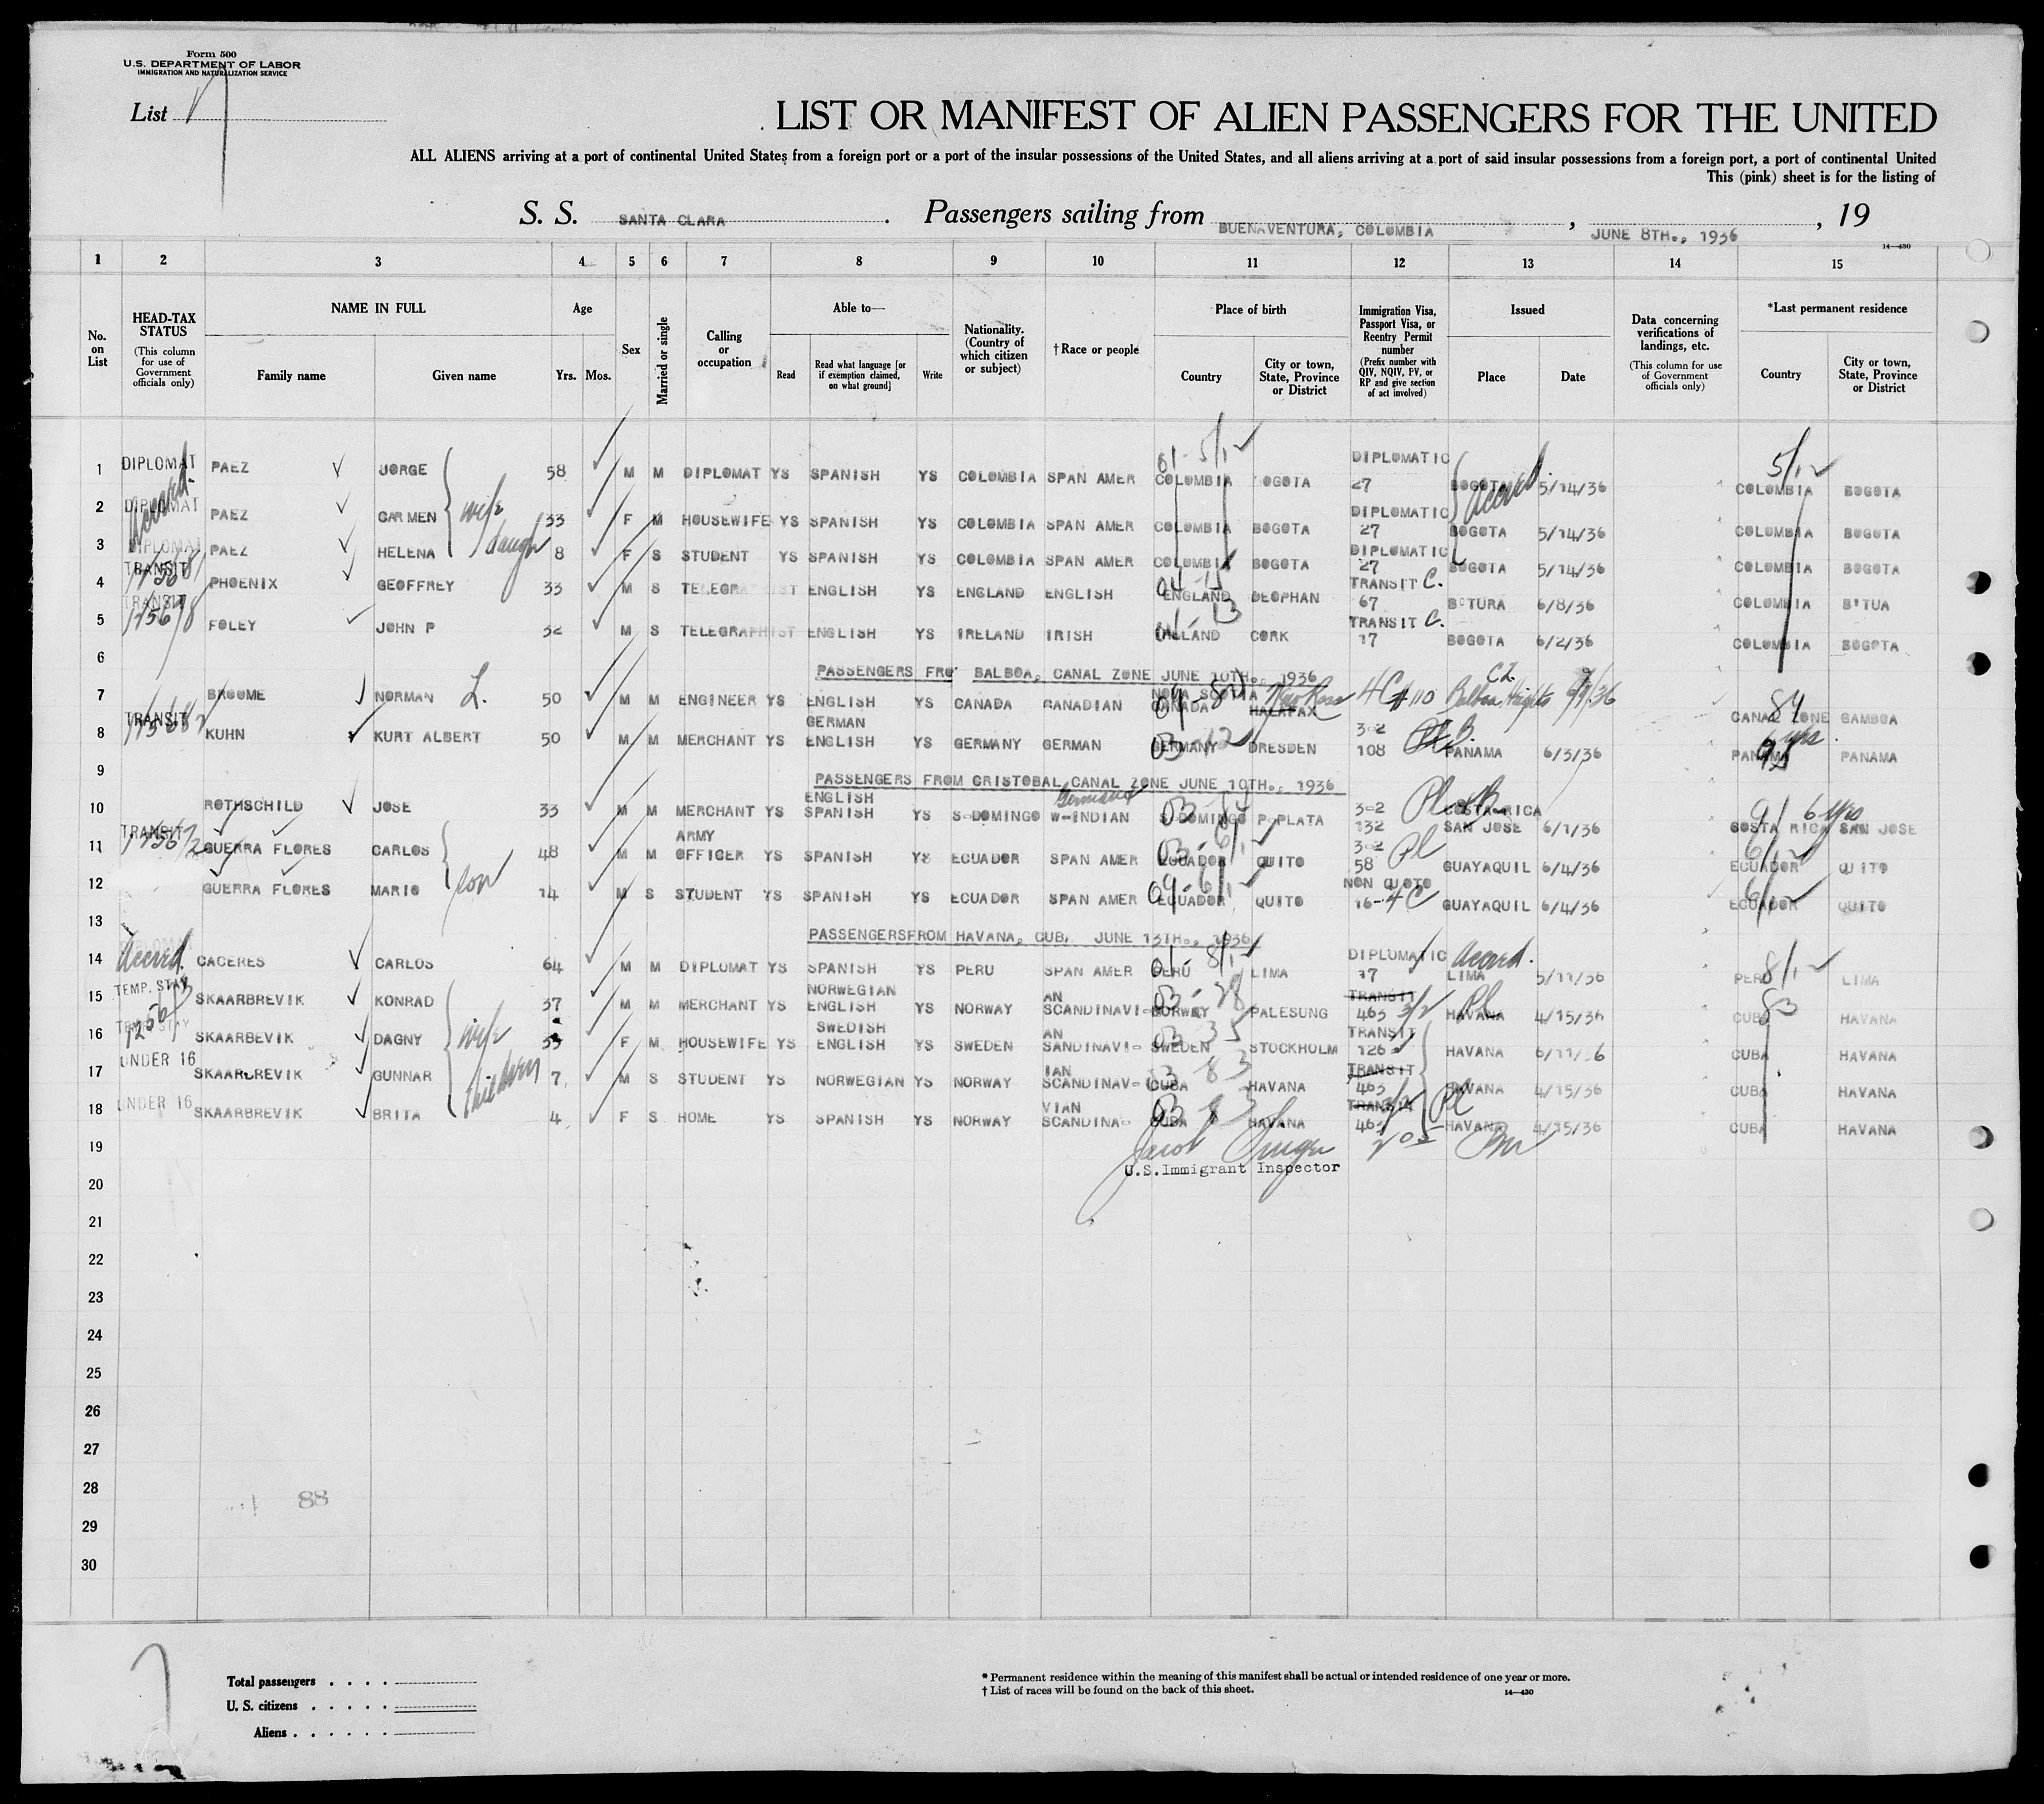 Form 500
U.S. DEPARTMENT OF LABOR
IMMIGRATION AND NATURALIZATION SERVICE
List 7
LIST OR MANIFEST OF ALIEN PASSENGERS FOR THE UNITED
ALL ALIENS arriving at a port of continental United States from a foreign port or a port of the insular possessions of the United States, and all aliens arriving at a port of said insular possessions from a foreign port, a port of continental United
This (pink) sheet is for the listing of
S. S. SANTA CLARA . Passengers sailing from BUENAVENTURA, COLOMBIA , JUNE 8TH., 1936 , 19
14—430
1 2 3 4 5 6 7 8 9 10 11 12 13 14 15
No. on List
HEAD-TAX STATUS (This column for use of Government officials only)
NAME IN FULL Family name Given name
Age Yrs. Mos.
Sex
Married or single
Calling or occupation
Able to— Read Read what language [or if exemption claimed, on what ground] Write
Nationality. (Country of which citizen or subject)
†Race or people
Place of birth Country City or town, State, Province or District
Immigration Visa, Passport Visa, or Reentry Permit number (Prefix number with QIV, NQIV, PV, or RP and give section of act involved)
Issued Place Date
Data concerning verifications of landings, etc. (This column for use of Government officials only)
*Last permanent residence Country City or town, State, Province or District
1 DIPLOMAT PAEZ JORGE 58 M M DIPLOMAT YS SPANISH YS COLOMBIA SPAN AMER COLOMBIA OGOTA DIPLOMATIC 27 BOGOTA 5/14/36 COLOMBIA BOGOTA
2 DIPLOMAT Accred. PAEZ CARMEN wife 33 F M HOUSEWIFE YS SPANISH YS COLOMBIA SPAN AMER COLOMBIA BOGOTA DIPLOMATIC 27 BOGOTA Accred. 5/14/36 COLOMBIA BOGOTA
3 DIPLOMAT PAEZ HELENA daugh 8 F S STUDENT YS SPANISH YS COLOMBIA SPAN AMER COLOMBIA BOGOTA DIPLOMATIC 27 BOGOTA 5/14/36 COLOMBIA BOGOTA
4 TRANSIT PHOENIX GEOFFREY 33 M S ENGLISH YS ENGLAND ENGLISH ENGLAND DEOPHAN TRANSIT C. 67 B'TURA 6/8/36 COLOMBIA B'TUA
5 TRANSIT FOLEY JOHN P 32 M S TELEGRAPHIST ENGLISH YS IRELAND IRISH CORK TRANSIT C. 17 BOGOTA 6/2/36 COLOMBIA BOGOTA
6 PASSENGERS FRO BALBOA, CANAL ZONE JUNE 10TH., 1936
7 BROOME NORMAN L. 50 M M ENGINEER YS ENGLISH YS CANADA CANADIAN NOVA SCOTIA CANADA HALAFAX New Ross 4C #110 Balboa Heights C.Z. CANAL ZONE GAMBOA
8 TRANSIT KUHN KURT ALBERT 50 M M MERCHANT YS GERMAN ENGLISH YS GERMANY GERMAN GERMANY DRESDEN 3-2 108 PANAMA 6/3/36 PANAMA PANAMA
9 PASSENGERS FROM CRISTOBAL, CANAL ZONE JUNE 10TH., 1936
10 ROTHSCHILD JOSE 33 M M MERCHANT YS ENGLISH SPANISH YS S-DOMINGO W-INDIAN Germany S-DOMINGO P-PLATA 3-2 132 COSTA-RICA SAN JOSE 6/1/36 COSTA RICA SAN JOSE 6 yrs
11 TRANSIT GUERRA FLORES CARLOS 48 M M ARMY OFFICER YS SPANISH YS ECUADOR SPAN AMER ECUADOR QUITO 3-2 58 GUAYAQUIL 6/4/36 ECUADOR QUITO
12 GUERRA FLORES MARIO son 14 M S STUDENT YS SPANISH YS ECUADOR SPAN AMER ECUADOR QUITO NON QUOTO 16-4C GUAYAQUIL 6/4/36 ECUADOR QUITO
13 PASSENGERSFROM HAVANA, CUB. JUNE 13TH., 1936
14 Accred. CACERES CARLOS 64 M M DIPLOMAT YS SPANISH YS PERU SPAN AMER PERU LIMA DIPLOMATIC 17 Accred. LIMA 5/11/36 PERU LIMA
15 TEMP. STAY SKAARBREVIK KONRAD 37 M M MERCHANT YS NORWEGIAN ENGLISH YS NORWAY SCANDINAVI-AN NORWAY PALESUNG TRANSIT 463 3/2 HAVANA 4/15/36 CUBA HAVANA
16 TEMP. STAY SKAARBEVIK DAGNY wife 33 F M HOUSEWIFE YS SWEDISH ENGLISH YS SWEDEN SANDINAVI-AN SWEDEN STOCKHOLM TRANSIT 126 HAVANA 6/11/36 CUBA HAVANA
17 UNDER 16 SKAARBREVIK GUNNAR children 7 M S STUDENT YS NORWEGIAN YS NORWAY SCANDINAV-IAN CUBA HAVANA TRANSIT 463 HAVANA 4/15/36 CUBA HAVANA
18 UNDER 16 SKAARBREVIK BRITA 4 F S HOME YS SPANISH YS NORWAY SCANDINA-VIAN CUBA HAVANA TRANSIT 463 HAVANA 4/15/36 CUBA HAVANA
19
U.S.Immigrant Inspector
20
21
22
23
24
25
26
27
28 88
29
30
7
Total passengers
U. S. citizens
Aliens
* Permanent residence within the meaning of this manifest shall be actual or intended residence of one year or more.
† List of races will be found on the back of this sheet.
14—430